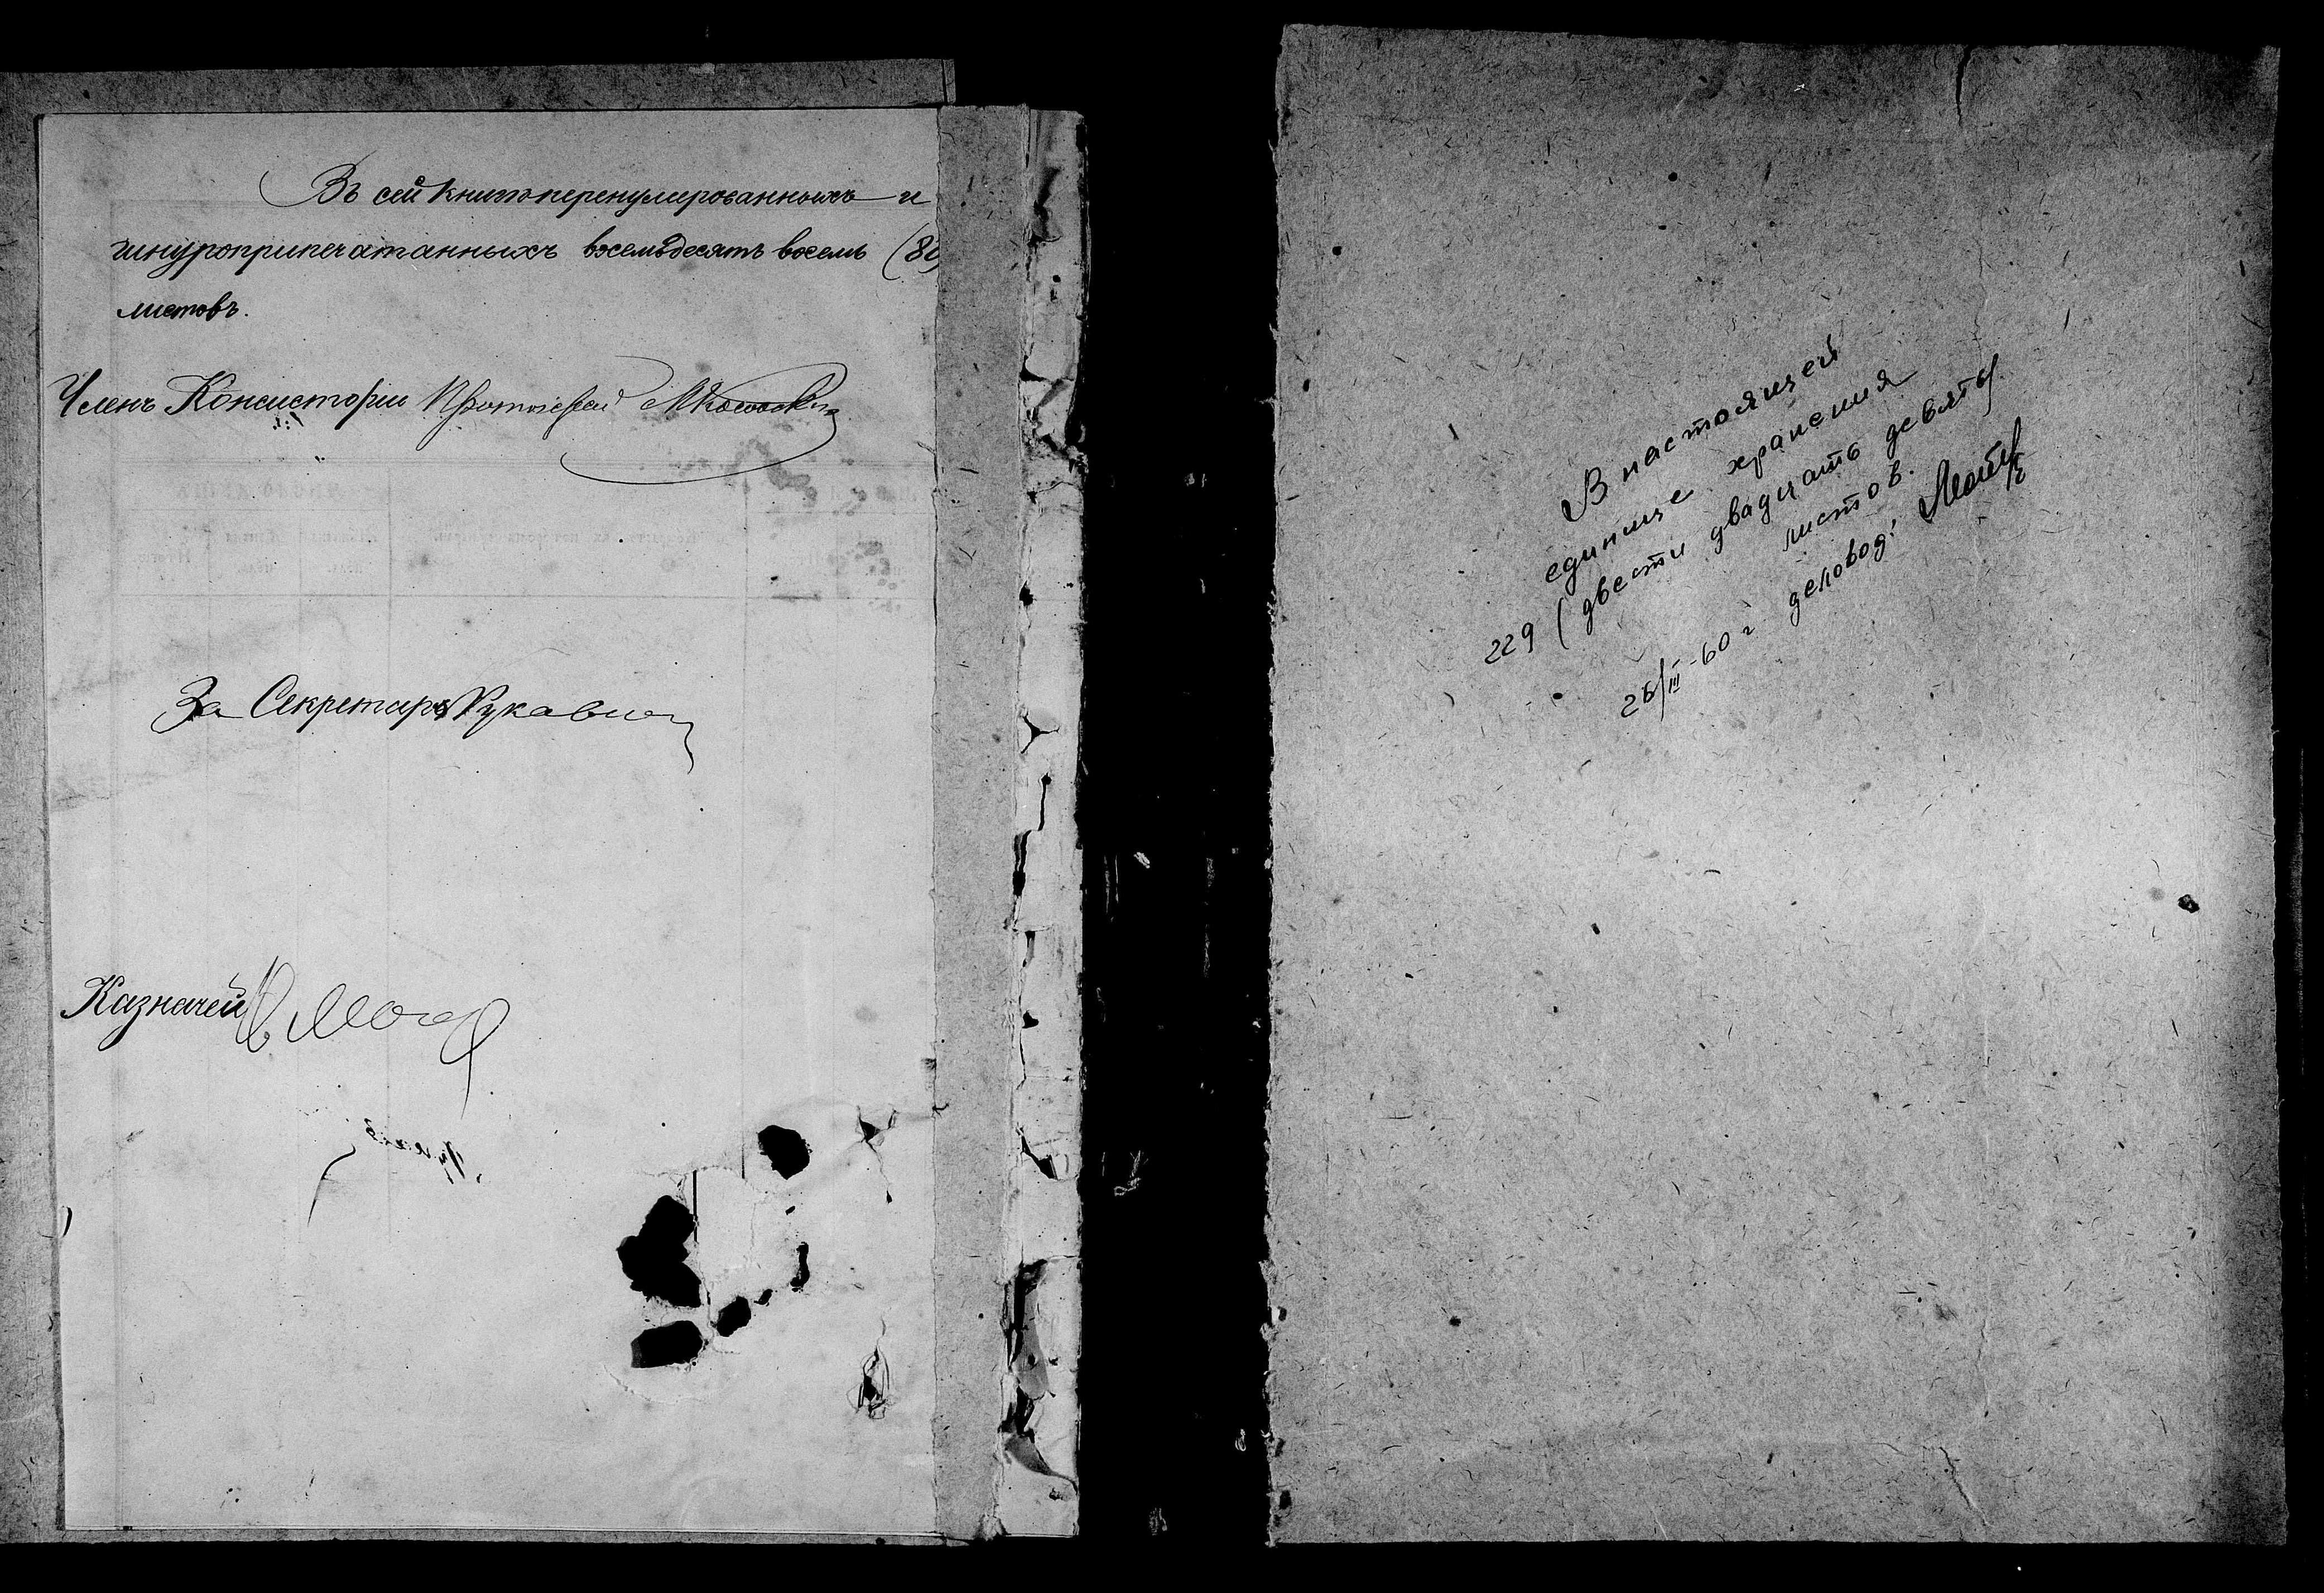 Въ сей книгѣ перенумерованныхъ и
шнуроприпечатанныхъ восемьдесятъ восемь (88
листовъ.
Членъ Консисторіи Протоіерей
За Секретаря
Казначей
В настоящей
единице хранения
229 (двести двадцать девять)
листов.
26/III-60 г деловод: